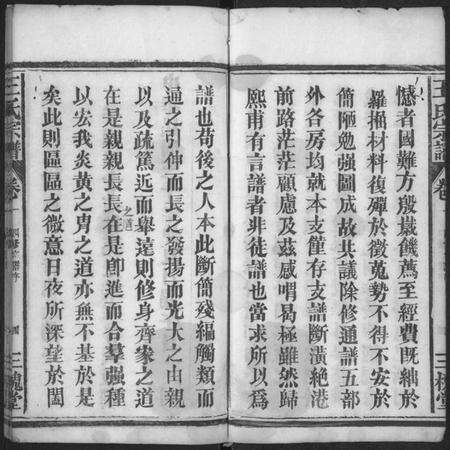 憾者國難方殷蟣饑薦至經費既絀於
羅掘材料復殫於徵蒐勢不得不安於
簡陋勉强圖成故共議除修通譜五部
外各房均就本支僅存支譜斷潢絶港
前路茫茫顧慮及茲感喟曷極雖然歸
熙甫有言譜者非徒譜也當求所以爲
譜也苟後之人本此斷簡殘編觸類而
通之引伸而長之發揚而光大之由親
以及疏篤近而舉遠則修身齊家之道
在是親親長長之道在是卽進而合羣强種
以宏我炎黄之胄之道亦無不基於是
矣此則區區之微意日夜所深望於閤
王氏宗譜
卷
三槐堂
王氏宗譜
卷
三槐堂